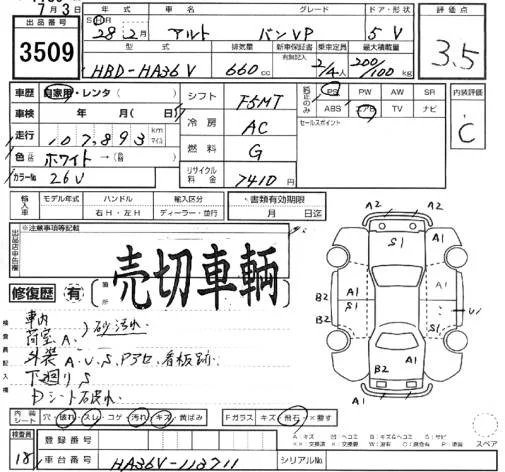 7月3日
出品番号
3509
年式 車名 グレード ドア・形状
SHR
28年2月 アルト バンVP 5V
型式 排気量 新車保証書 乗車定員 最大積載量
有無記入
HBD-HA36V 660cc 2/4人 200/100kg
評価点
3.5
車歴 自家用・レンタ( )
車検 年 月( 日)
走行 107,893 km マイル
色 ホワイト→( )
カラーNo. 26U
シフト F5MT
冷房 AC
燃料 G
リサイクル料金 7410円
純正のみ
PS PW AW SR
ABS エアB TV ナビ
セールスポイント
内装評価
C
輸入車 モデル年式 ハンドル 輸入区分
右H・左H ディーラー・並行
書類有効期限
月 日迄
出品店申告欄
※注意事項等記載
売切車輌
修復歴 有 箇所
検査員記入欄
車内
荷室、A、 )砂汚れ
外装 A、U、S、Pアセ、看板跡、
下廻りS
Dシート汚れ
A2 A2
S1 A1
B2 A1 A1
U1
B2 S1 S1
A1
B2 A2
A1 A1
内装シート 穴・破れ・スレ・コゲ・汚れ・キズ・黄ばみ
Fガラス キズ・飛石・×要す
A:キズ U:ヘコミ B:キズ&ヘコミ S:サビ
スペア
検査員
18
登録番号
車台番号 HA36V-113711
シリアルNo.